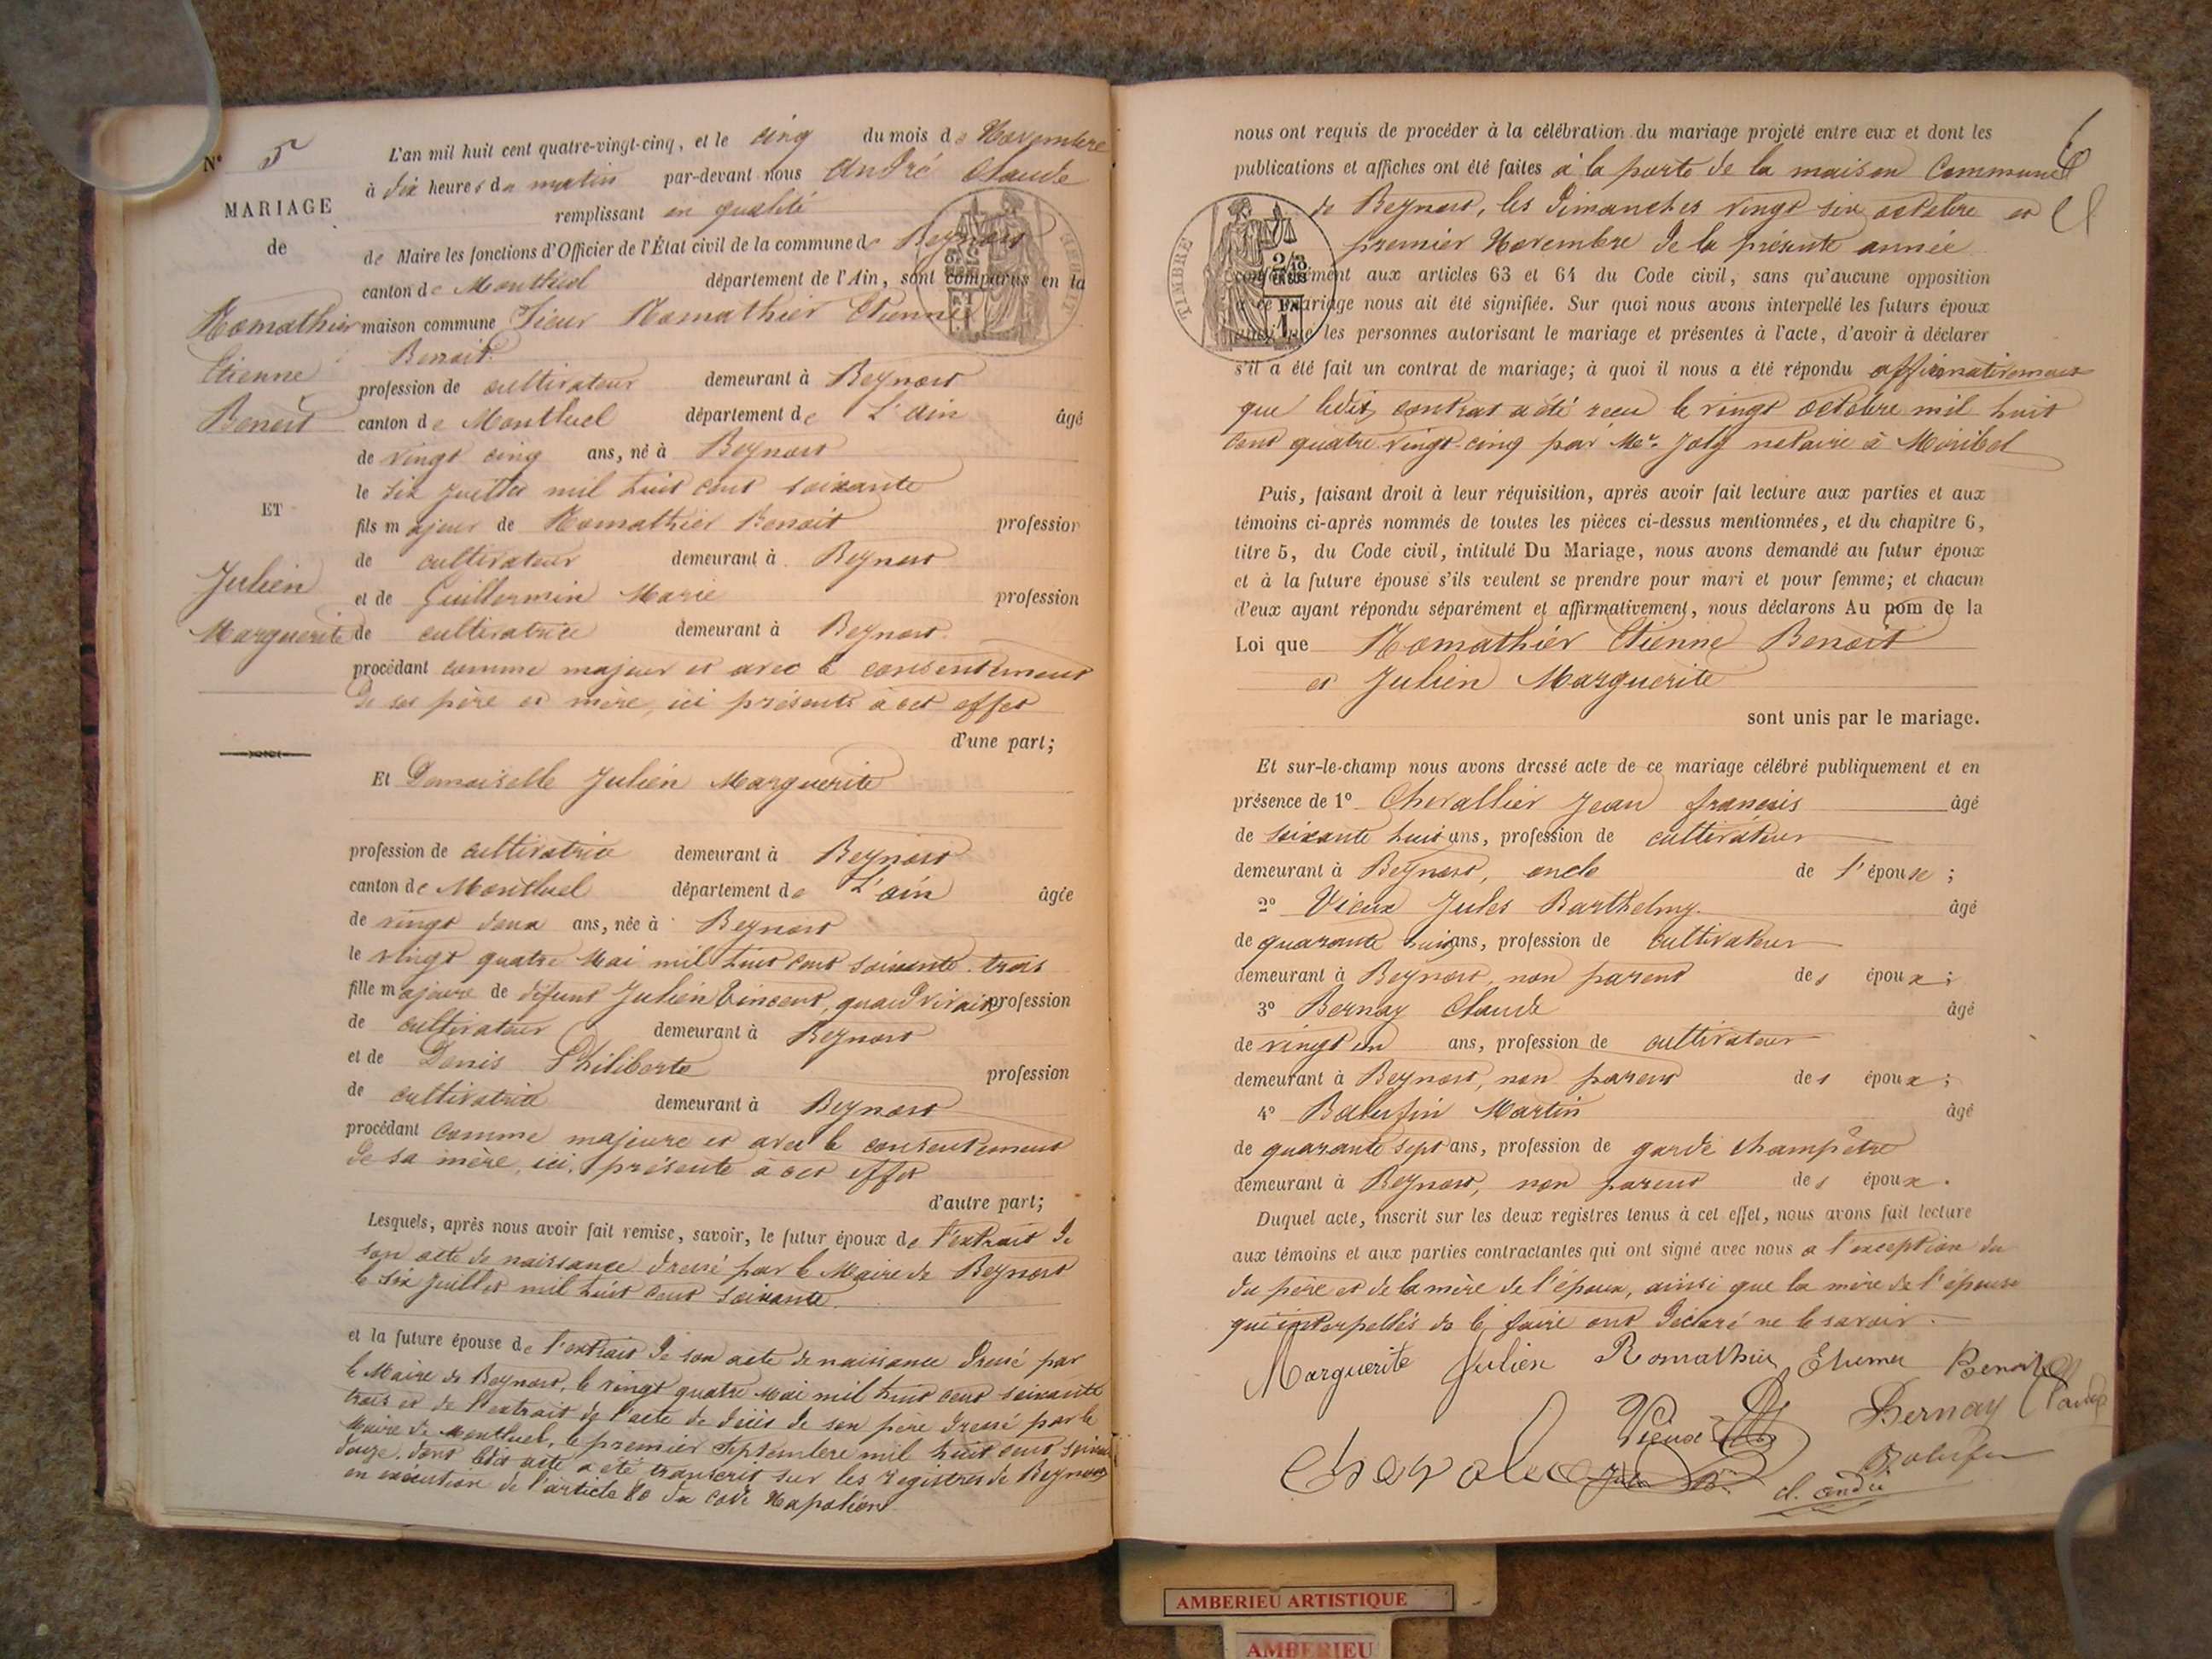 N° 5
MARIAGE
de
Romathier
Etienne
Benoit
ET
Julien
Marguerite
L'an mil huit cent quatre-vingt-cinq, et le cinq du mois de Novembre
à dix heures du matin par-devant nous André Claude
remplissant en qualité
de Maire les fonctions d'Officier de l'État civil de la commune de Beynost
canton de Montluel département de l'Ain, sont comparus en la
maison commune Sieur Romathier Etienne
Benoit
profession de cultivateur demeurant à Beynost
canton de Montluel département de L'ain âgé
de vingt cinq ans, né à Beynost
le six Juillet mil huit cent soixante
fils majeur de Romathier Benoit profession
de cultivateur demeurant à Beynost
et de Guillermin Marie profession
de cultivatrice demeurant à Beynost
procédant comme majeur et avec le consentement
de ses père et mère, ici présents à cet effet
d'une part;
Et Demoiselle Julien Marguerite
profession de cultivatrice demeurant à Beynost
canton de Montluel département de L'ain âgée
de vingt deux ans, née à Beynost
le vingt quatre Mai mil huit cent soixante trois
fille majeure de défunt Julien Vincent, quand vivait profession
de cultivateur demeurant à Beynost
et de Denis Philiberte profession
de cultivatrice demeurant à Beynost
procédant comme majeure et avec le consentement
de sa mère, ici, présente à cet effet
d'autre part;
Lesquels, après nous avoir fait remise, savoir, le futur époux de l'extrait de
son acte de naissance dressé par le Maire de Beynost
le six juillet mil huit cent soixante.
et la future épouse de l'extrait de son acte de naissance dressé par
le Maire de Beynost, le vingt quatre Mai mil huit cent soixante
trois et de l'extrait de l'acte de décès de son père dressé par le
Maire de Montluel, le premier Septembre mil huit cent soixante
douze, dont ledit acte a été transcrit sur les registres de Beynost
en exécution de l'article 80 du code Napoléon
nous ont requis de procéder à la célébration du mariage projeté entre eux et dont les
publications et affiches ont été faites à la porte de la maison Commune
de Beynost, les dimanches vingt six octobre et
premier Novembre de la présente année
TIMBRE
2/10 EN SUS
1
conformément aux articles 63 et 64 du Code civil, sans qu'aucune opposition
à ce mariage nous ait été signifiée. Sur quoi nous avons interpellé les futurs époux
ainsi que les personnes autorisant le mariage et présentes à l'acte, d'avoir à déclarer
s'il a été fait un contrat de mariage; à quoi il nous a été répondu affirmativement
que ledit contrat a été reçu le vingt octobre mil huit
cent quatre vingt-cinq par Me. Joly notaire à Miribel
Puis, faisant droit à leur réquisition, après avoir fait lecture aux parties et aux
témoins ci-après nommés de toutes les pièces ci-dessus mentionnées, et du chapitre 6,
titre 5, du Code civil, intitulé Du Mariage, nous avons demandé au futur époux
et à la future épouse s'ils veulent se prendre pour mari et pour femme; et chacun
d'eux ayant répondu séparément et affirmativement, nous déclarons Au nom de la
Loi que Romathier Etienne Benoit
et Julien Marguerite
sont unis par le mariage.
Et sur-le-champ nous avons dressé acte de ce mariage célébré publiquement et en
présence de 1° Chevallier Jean françois âgé
de soixante huit ans, profession de cultivateur
demeurant à Beynost, oncle de l'épouse;
2° Vieux Jules Barthelmy. âgé
de quarante huit ans, profession de cultivateur
demeurant à Beynost, non parent des époux;
3° Bernay Claude âgé
de vingt un ans, profession de cultivateur
demeurant à Beynost, non parent des époux;
4° Balufin Martin âgé
de quarante sept ans, profession de garde champêtre
demeurant à Beynost, non parent des époux.
Duquel acte, inscrit sur les deux registres tenus à cet effet, nous avons fait lecture
aux témoins et aux parties contractantes qui ont signé avec nous a l'exception du
du père et de la mère de l'époux, ainsi que la mère de l'épouse
qui interpellés de le faire ont déclaré ne le savoir.
Marguerite Julien Romathier Etienne Benoit
Vieux Bernay Claude
Balufin
cl. andré
AMBERIEU ARTISTIQUE
AMBERIEU